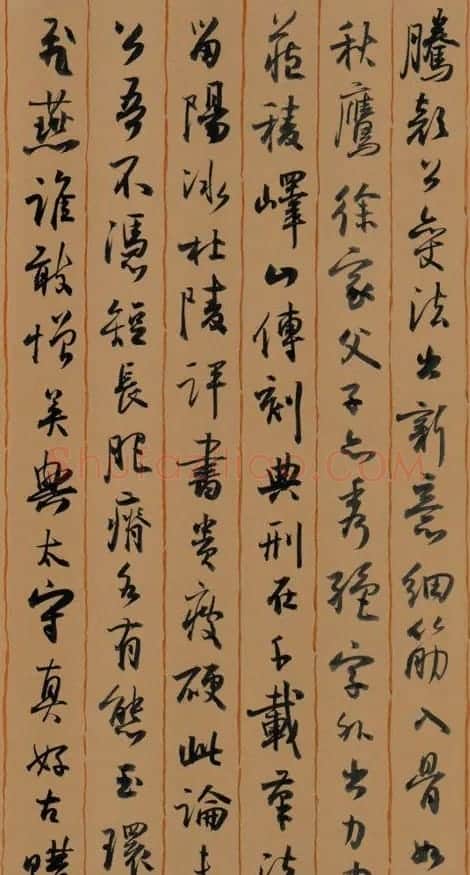 騰顏公變法出新意細筋入骨如
秋鷹徐家父子亦秀絕字外出力
藏稜嶧山傳刻典刑在千載筆法
留陽冰杜陵評書貴瘦硬此論未
公吾不憑短長肥瘠各有態玉環
飛燕誰敢憎吳興太守真好古購